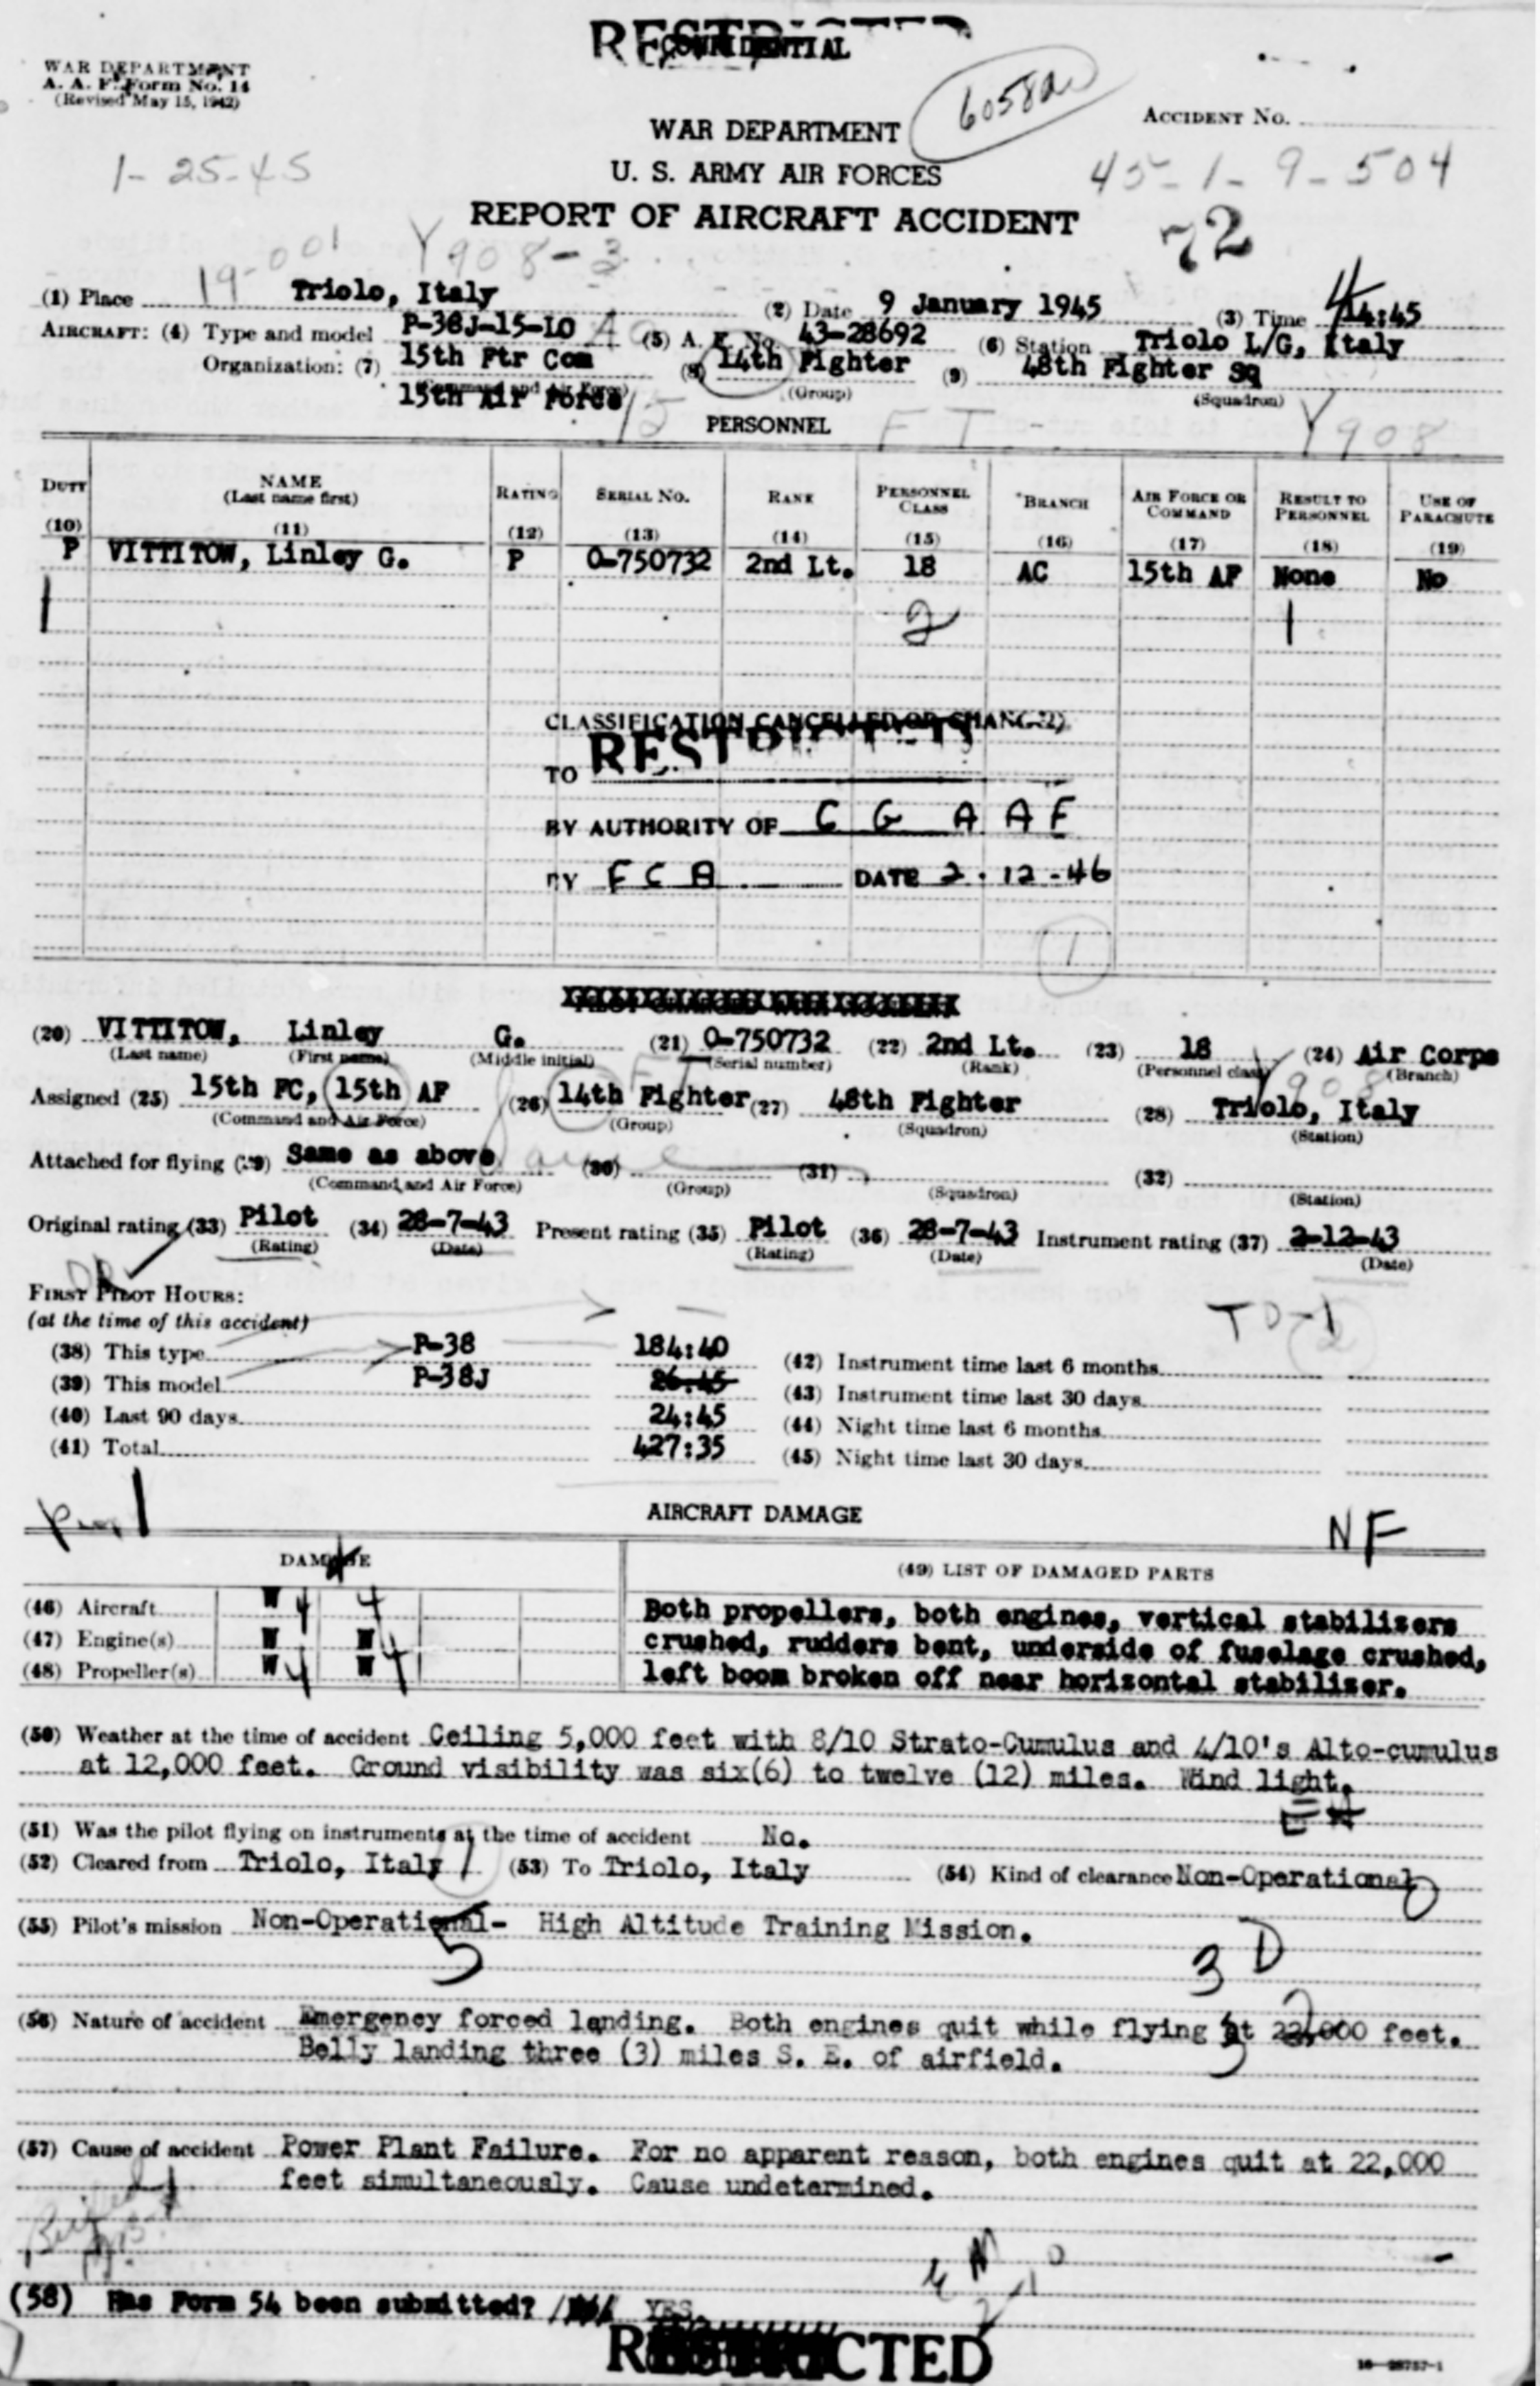 RESTRICTED
CONFIDENTIAL
WAR DEPARTMENT
A. A. F. Form No. 14
(Revised May 15, 1942)
ACCIDENT No.
WAR DEPARTMENT
U. S. ARMY AIR FORCES
REPORT OF AIRCRAFT ACCIDENT
1-25-45
45-1-9-504
72
19-001 Y908-3
(1) Place Triolo, Italy (2) Date 9 January 1945 (3) Time 14:45
AIRCRAFT: (4) Type and model P-38J-15-LO (5) A. F. No. 43-28692 (6) Station Triolo L/G, Italy
Organization: (7) 15th Ftr Com (8) 14th Fighter (9) 48th Fighter Sq
(Command and Air Force) (Group) (Squadron)
15th Air Force
15 PERSONNEL F T Y908
DUTY NAME (Last name first) RATING SERIAL NO. RANK PERSONNEL CLASS BRANCH AIR FORCE OR COMMAND RESULT TO PERSONNEL USE OF PARACHUTE
(10) (11) (12) (13) (14) (15) (16) (17) (18) (19)
P VITTITOW, Linley G. P O-750732 2nd Lt. 18 AC 15th AF None No
1 2 1
CLASSIFICATION CANCELLED OR CHANGED
TO RESTRICTED
BY AUTHORITY OF C G A A F
BY F C A DATE 2-12-46
1
(20) VITTITOW, Linley G. (21) O-750732 (22) 2nd Lt. (23) 18 (24) Air Corps
(Last name) (First name) (Middle initial) (Serial number) (Rank) (Personnel class) (Branch)
Assigned (25) 15th FC, 15th AF (26) 14th Fighter (27) 48th Fighter (28) Triolo, Italy
(Command and Air Force) (Group) (Squadron) (Station)
Attached for flying (29) Same as above (30) (31) (32)
(Command and Air Force) (Group) (Squadron) (Station)
Original rating (33) Pilot (34) 28-7-43 Present rating (35) Pilot (36) 28-7-43 Instrument rating (37) 2-12-43
(Rating) (Date) (Rating) (Date) (Date)
FIRST PILOT HOURS:
(at the time of this accident)
(38) This type P-38 184:40 (42) Instrument time last 6 months
(39) This model P-38J 26:45 (43) Instrument time last 30 days
(40) Last 90 days 24:45 (44) Night time last 6 months
(41) Total 427:35 (45) Night time last 30 days
AIRCRAFT DAMAGE
NF
DAMAGE (49) LIST OF DAMAGED PARTS
(46) Aircraft W 4 4 Both propellers, both engines, vertical stabilizers
(47) Engine(s) W W crushed, rudders bent, underside of fuselage crushed,
(48) Propeller(s) W 4 W 4 left boom broken off near horizontal stabilizer.
(50) Weather at the time of accident Ceiling 5,000 feet with 8/10 Strato-Cumulus and 4/10's Alto-cumulus
at 12,000 feet. Ground visibility was six(6) to twelve (12) miles. Wind light.
(51) Was the pilot flying on instruments at the time of accident No.
(52) Cleared from Triolo, Italy (53) To Triolo, Italy (54) Kind of clearance Non-Operational
(55) Pilot's mission Non-Operational- High Altitude Training Mission.
5 3 D
(56) Nature of accident Emergency forced landing. Both engines quit while flying at 22,000 feet.
Belly landing three (3) miles S. E. of airfield.
(57) Cause of accident Power Plant Failure. For no apparent reason, both engines quit at 22,000
feet simultaneously. Cause undetermined.
(58) Has Form 54 been submitted? YES.
RESTRICTED
16-28757-1